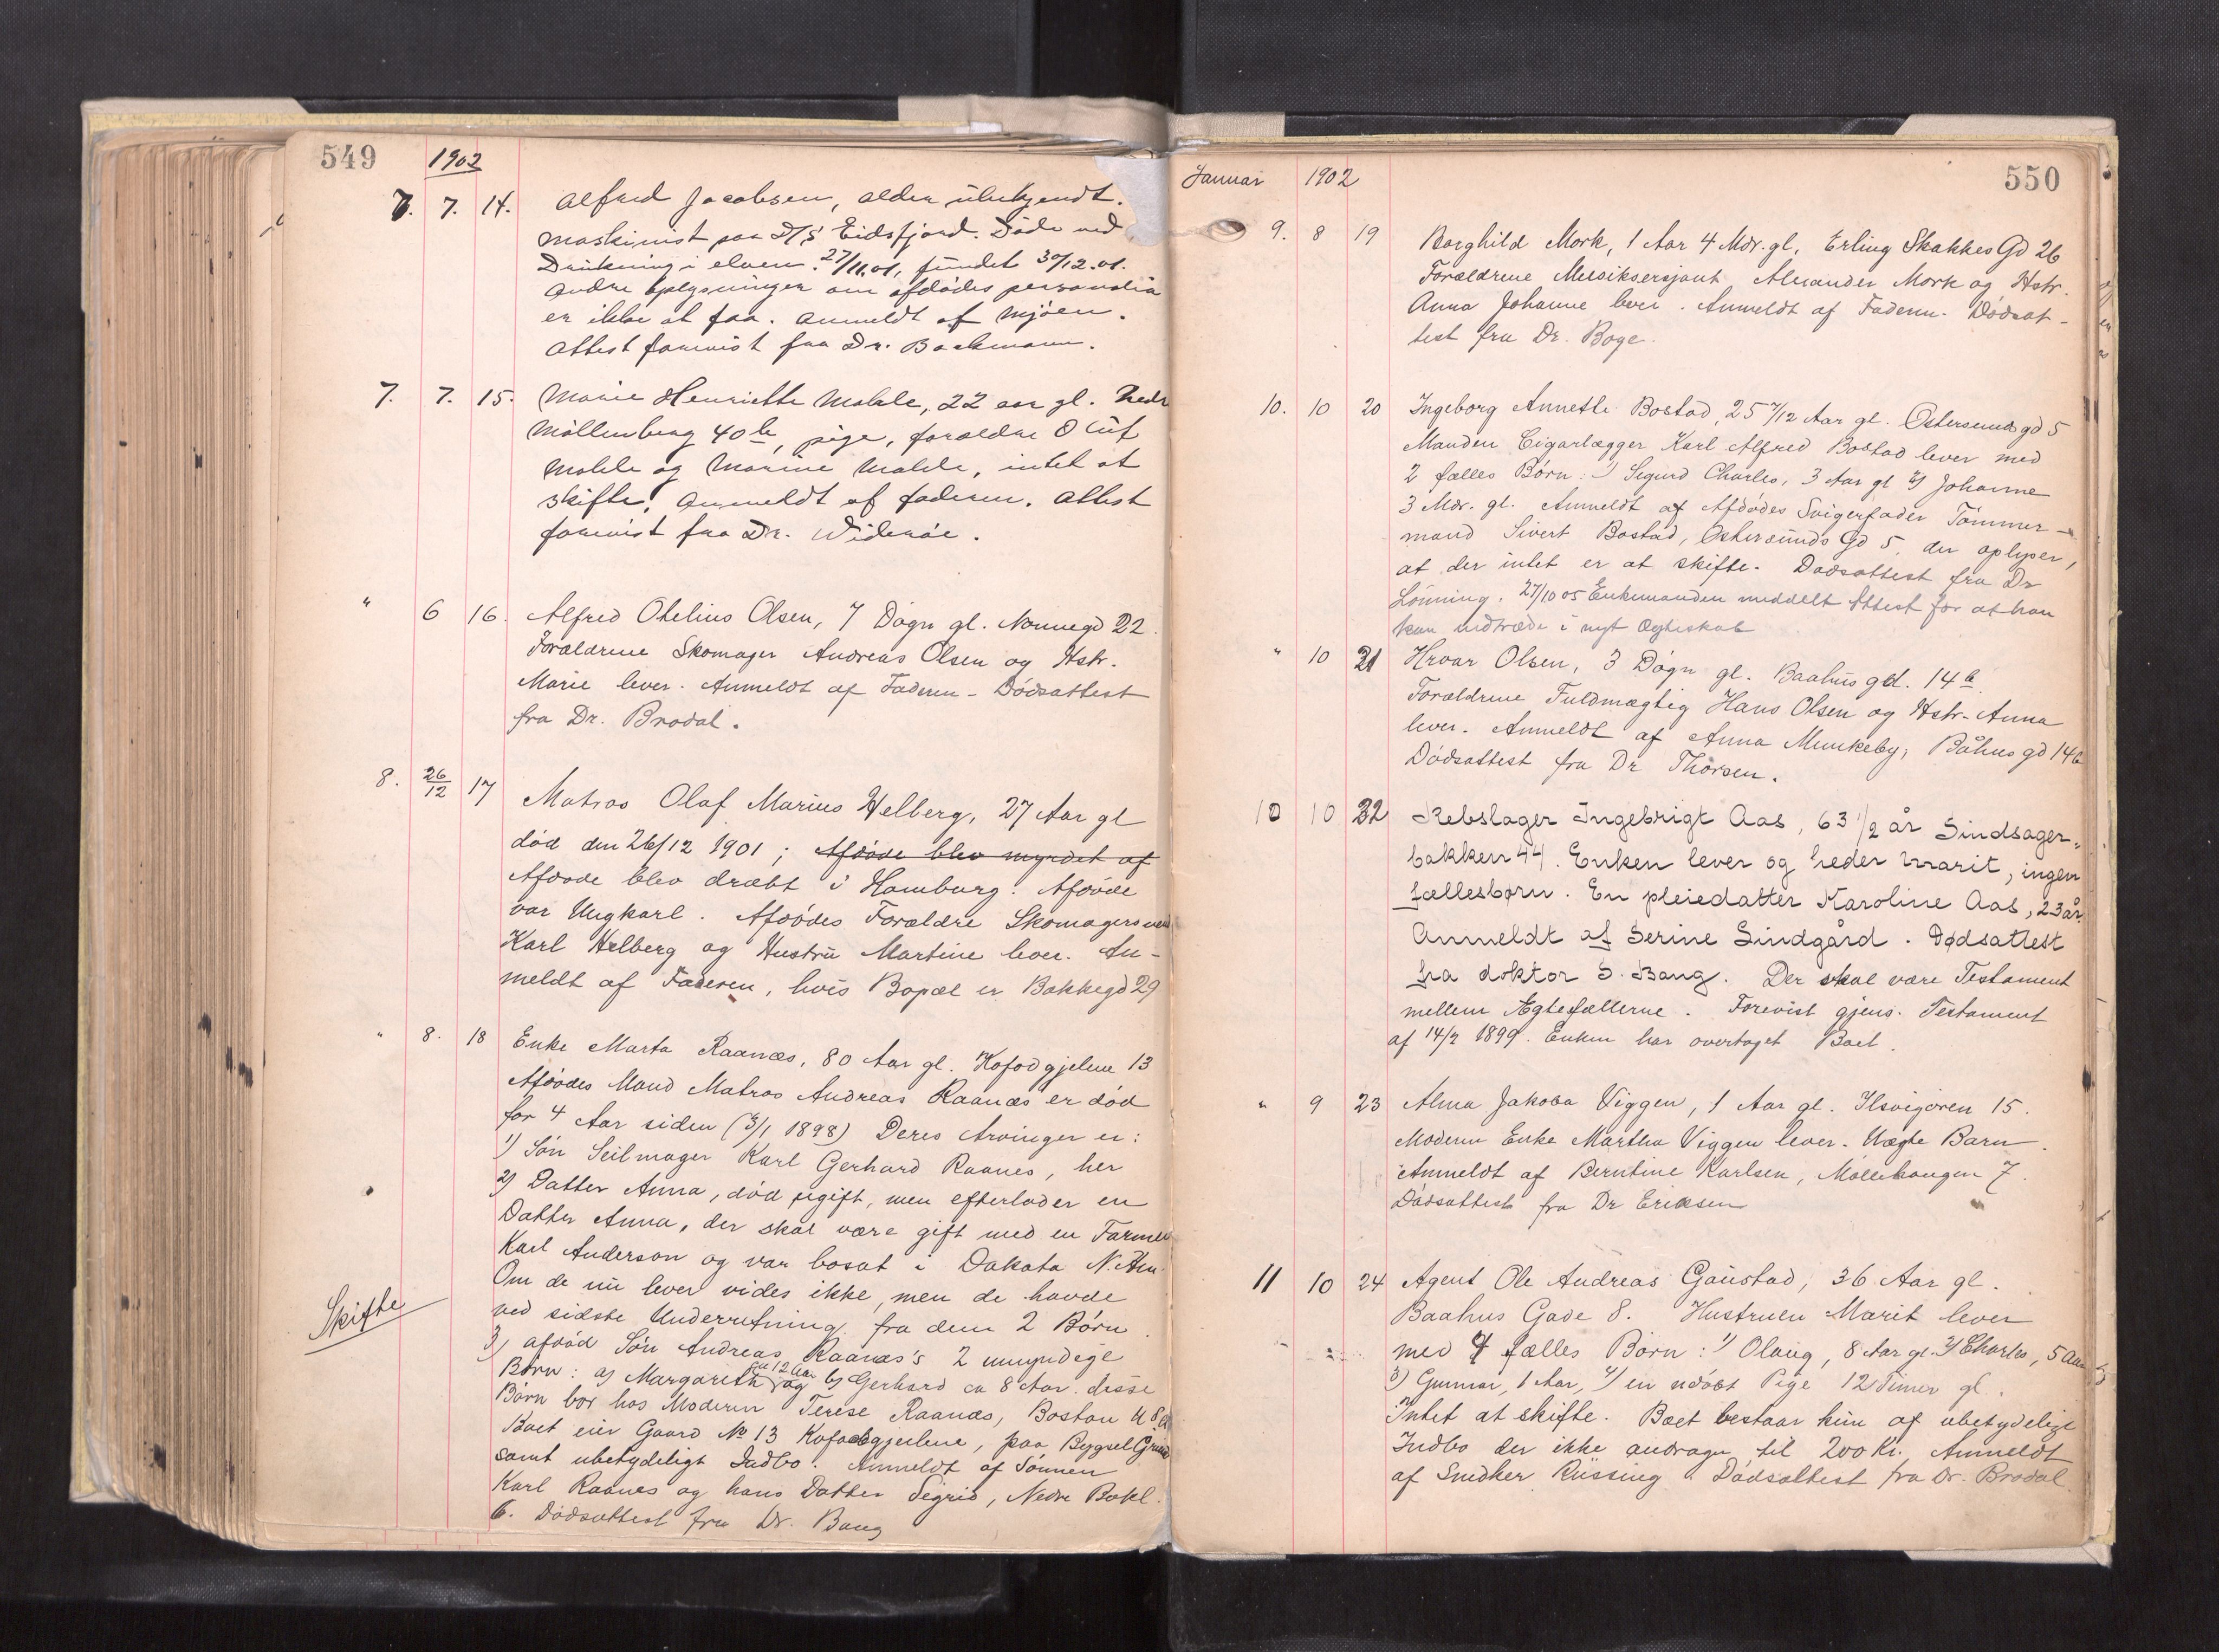 549 1902
7. 7. 14. Alfred Jacobsen, alder ubekjendt.
maskinist paa D/S Eidsfjord. Döde ved
Drukning i elven 27/11.01, fundet 30/12.01.
Andre oplysninger om afdödes personalia
er ikke at faa. Anmeldt af Mjöen.
Attest forevist fra Dr. Backmann.
7. 7. 15. Marie Henriette Molde, 22 aar gl. Nedr
Möllenberg 40 b, pige, forældre Oluf
Molde og Marine Molde, intet at
skifte. Anmeldt af faderen. Attest
forevist fra Dr. Wideröe.
" 6 16. Alfred Otelius Olsen, 7 Dögn gl. Nonnegd 22.
Forældrene Skomager Andreas Olsen og Hstr.
Marie lever. Anmeldt af Faderen - Dödsattest
fra Dr. Brodal.
8. 26/12 17 Matros Olaf Marius Helberg, 27 Aar gl
död den 26/12 1901; Afdöde blev myrdet af
Afdöde blev dræbt i Hamburg. Afdöde
var Ungkarl. Afdödes Forældre Skomagersvend
Karl Helberg og Hustru Martine lever. An-
meldt af Faderen, hvis Bopæl er Bakkegd 29
" 8. 18 Enke Marta Raanæs, 80 Aar gl. Kofodgjelene 13
Afdödes Mand Matros Andreas Raanæs er död
for 4 Aar siden (3/1 1898) Deres Arvinger er:
1) Sön Seilmager Karl Gerhard Raanes, her
2) Datter Anna, död ugift, men efterlader en
Datter Anna, der skal være gift med en Farmer
Karl Anderson og var bosat i Dakota N. Am.
Om de nu lever vides ikke, men de havde
ved sidste Underretning fra dem 2 Börn.
Skifte
3) afdöd Sön Andreas Raanæs's 2 umyndige
Börn: a) Margareth ca 12 Aar og b) Gerhard ca 8 Aar. disse
Börn bor hos Moderen Terese Raanæs, Boston U.S.A.
Boet eier Gaard No 13 Kofoedgjelene, paa Bygsel Grund
samt ubetydeligt Indbo. Anmeldt af Sönnen
Karl Raanes og hans Datter Sigrid, Nedre Bakl.
6. Dödsattest fra Dr. Bang
Januar 1902 550
9. 8 19 Borghild Mork, 1 Aar 4 Mdr. gl. Erling Skakkes Gd 26
Forældrene Musiksersjant Alexander Mork og Hstr.
Anna Johanne lever. Anmeldt af Faderen. Dödsat-
test fra Dr. Boge.
10. 10 20 Ingeborg Annette Bostad, 25 7/12 Aar gl. Ostersunds gd 5
Manden Cigarlægger Karl Alfred Bostad lever med
2 fælles Börn: 1) Sigurd Charles, 3 Aar gl 2) Johanne
3 Mdr. gl. Anmeldt af Afdödes Svigerfader Tömmer-
mand Sivert Bostad, Ostersunds Gd 5, der oplyser,
at der intet er at skifte. Dödsattest fra Dr
Lönning. 27/10 05 Enkemanden meddelt Attest for at han
kan indtræde i nyt Ægteskab
" 10 21 Hroar Olsen, 3 Dögn gl. Baahus gd. 14 b.
Forældrene Fuldmægtig Hans Olsen og Hstr. Anna
lever. Anmeldt af Anna Munkeby, Båhus gd 14 b
Dödsattest fra Dr Thorsen.
10 10 22 Rebslager Ingebrigt Aas, 63 1/2 år Sindsager-
bakken 44. Enken lever og heder Marit, ingen
fællesbørn. En pleiedatter Karoline Aas, 23 år
Anmeldt af Serine Lindgård. Dødsattest
fra doktor S. Bang. Der skal være Testament
mellem Ægtefællerne. Forevist gjens. Testament
af 14/2 1899. Enken har overtaget Boet.
" 9 23 Alma Jakoba Viggen, 1 Aar gl. Ilsvigören 15.
Moderen Enke Martha Viggen lever. Uægte Barn.
Anmeldt af Berntine Karlsen, Möllehaugen 7.
Dödsattest fra Dr Eriksen
11 10 24 Agent Ole Andreas Gaustad, 36 Aar gl.
Baahus Gade 8. Hustruen Marit lever
med 4 fælles Börn: 1) Olaug, 8 Aar gl. 2) Charles, 5 Aar
3) Gunnar, 1 Aar, 4) en udöbt Pige 12 Timer gl.
Intet at skifte. Boet bestaar kun af ubetydelige
Indbo der ikke andrager til 200 Kr. Anmeldt
af Snidker Rüssing. Dödsattest fra Dr. Brodal.